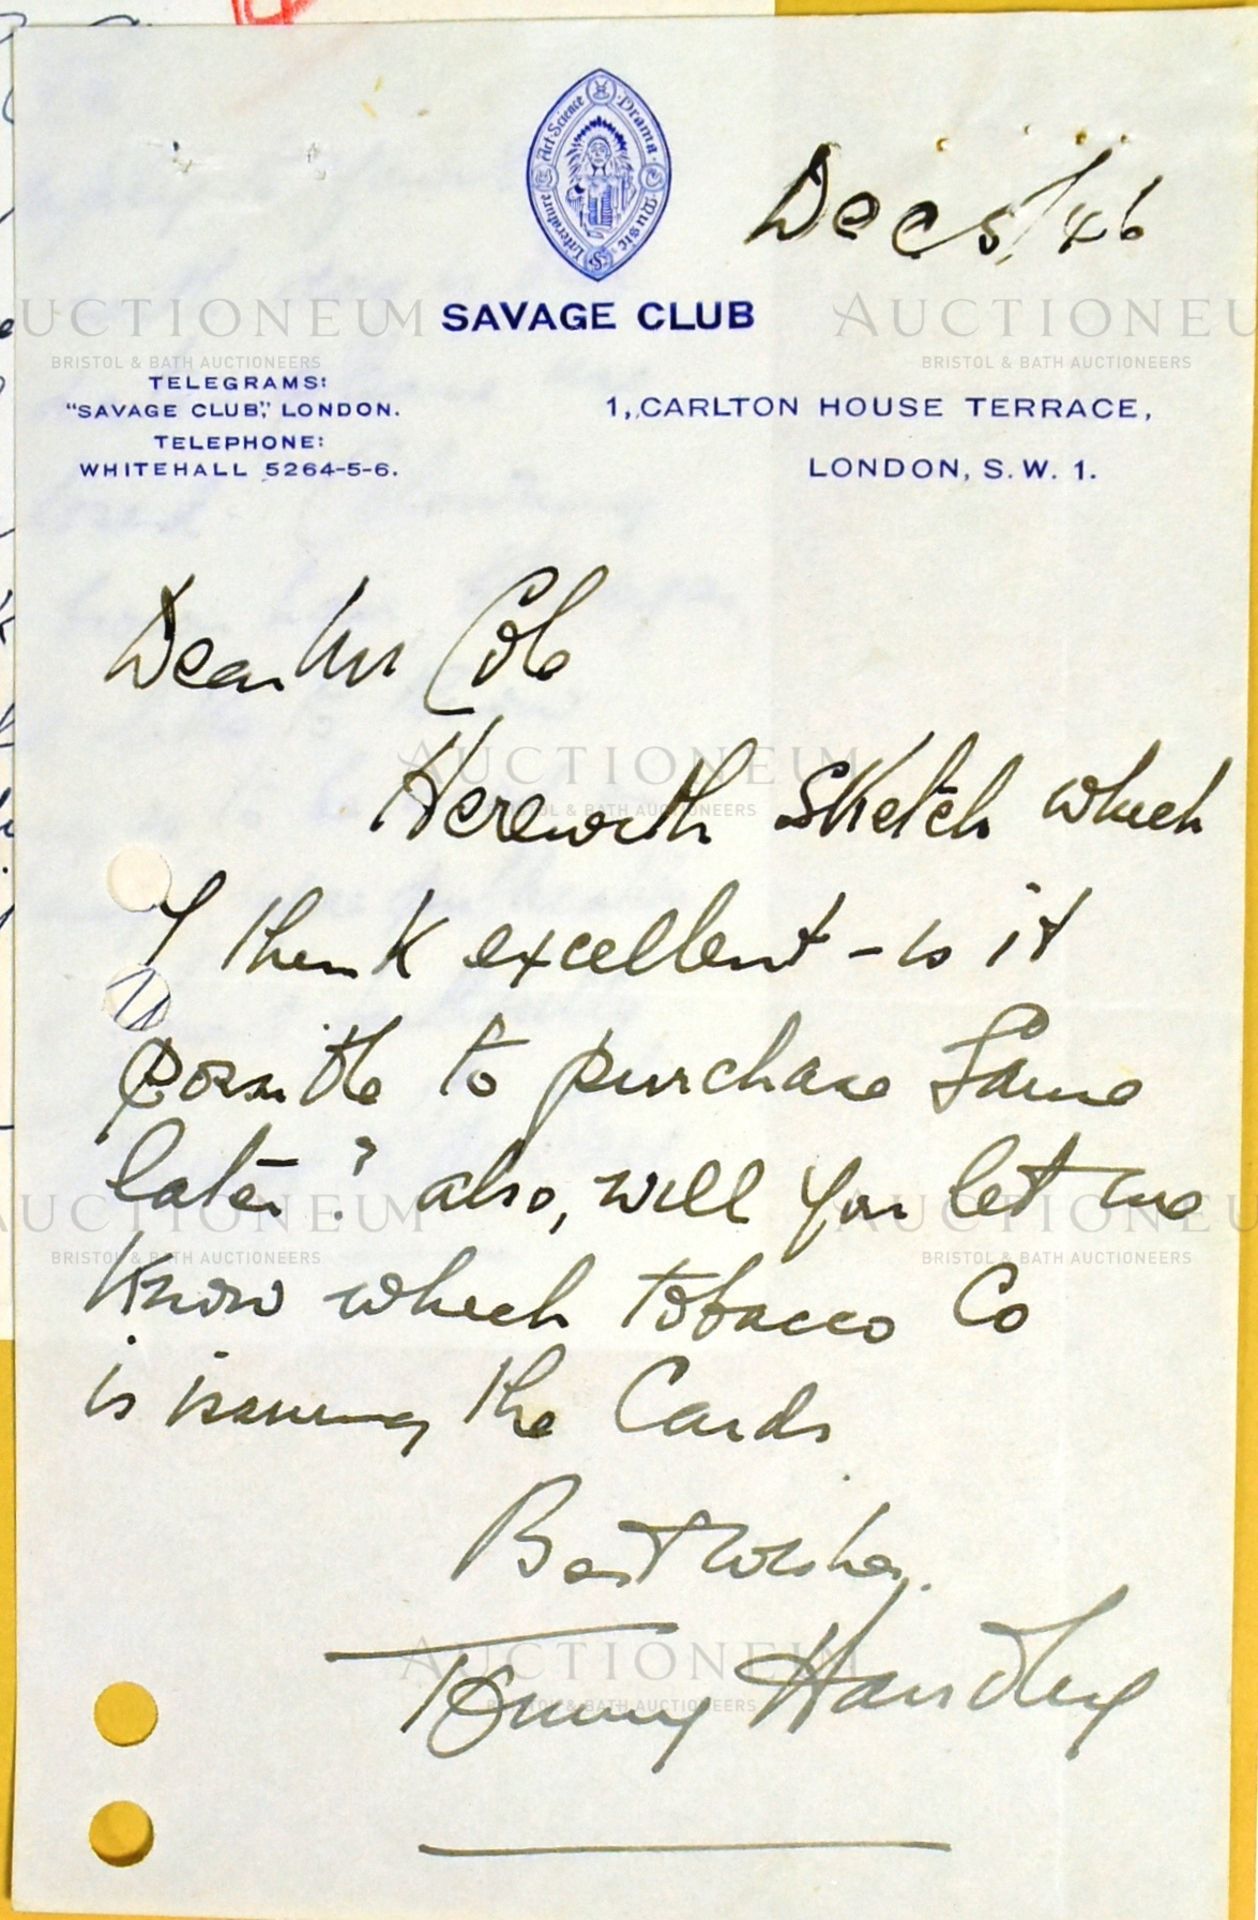 Art · Science · Drama · Music · Literature
Dec 5/46
SAVAGE CLUB
TELEGRAMS:
"SAVAGE CLUB," LONDON.
TELEPHONE:
WHITEHALL 5264-5-6.
1, CARLTON HOUSE TERRACE,
LONDON, S.W. 1.
Dear Mr Cole
Herewith Sketch which
I think excellent - is it
possible to purchase same
later? also, will you let me
know which tobacco Co
is issuing the Cards
Best wishes.
Tommy Handley
AUCTIONEUM
BRISTOL & BATH AUCTIONEERS
AUCTIONEUM
BRISTOL & BATH AUCTIONEERS
AUCTIONEUM
BRISTOL & BATH AUCTIONEERS
AUCTIONEUM
BRISTOL & BATH AUCTIONEERS
AUCTIONEUM
BRISTOL & BATH AUCTIONEERS
AUCTIONEUM
BRISTOL & BATH AUCTIONEERS